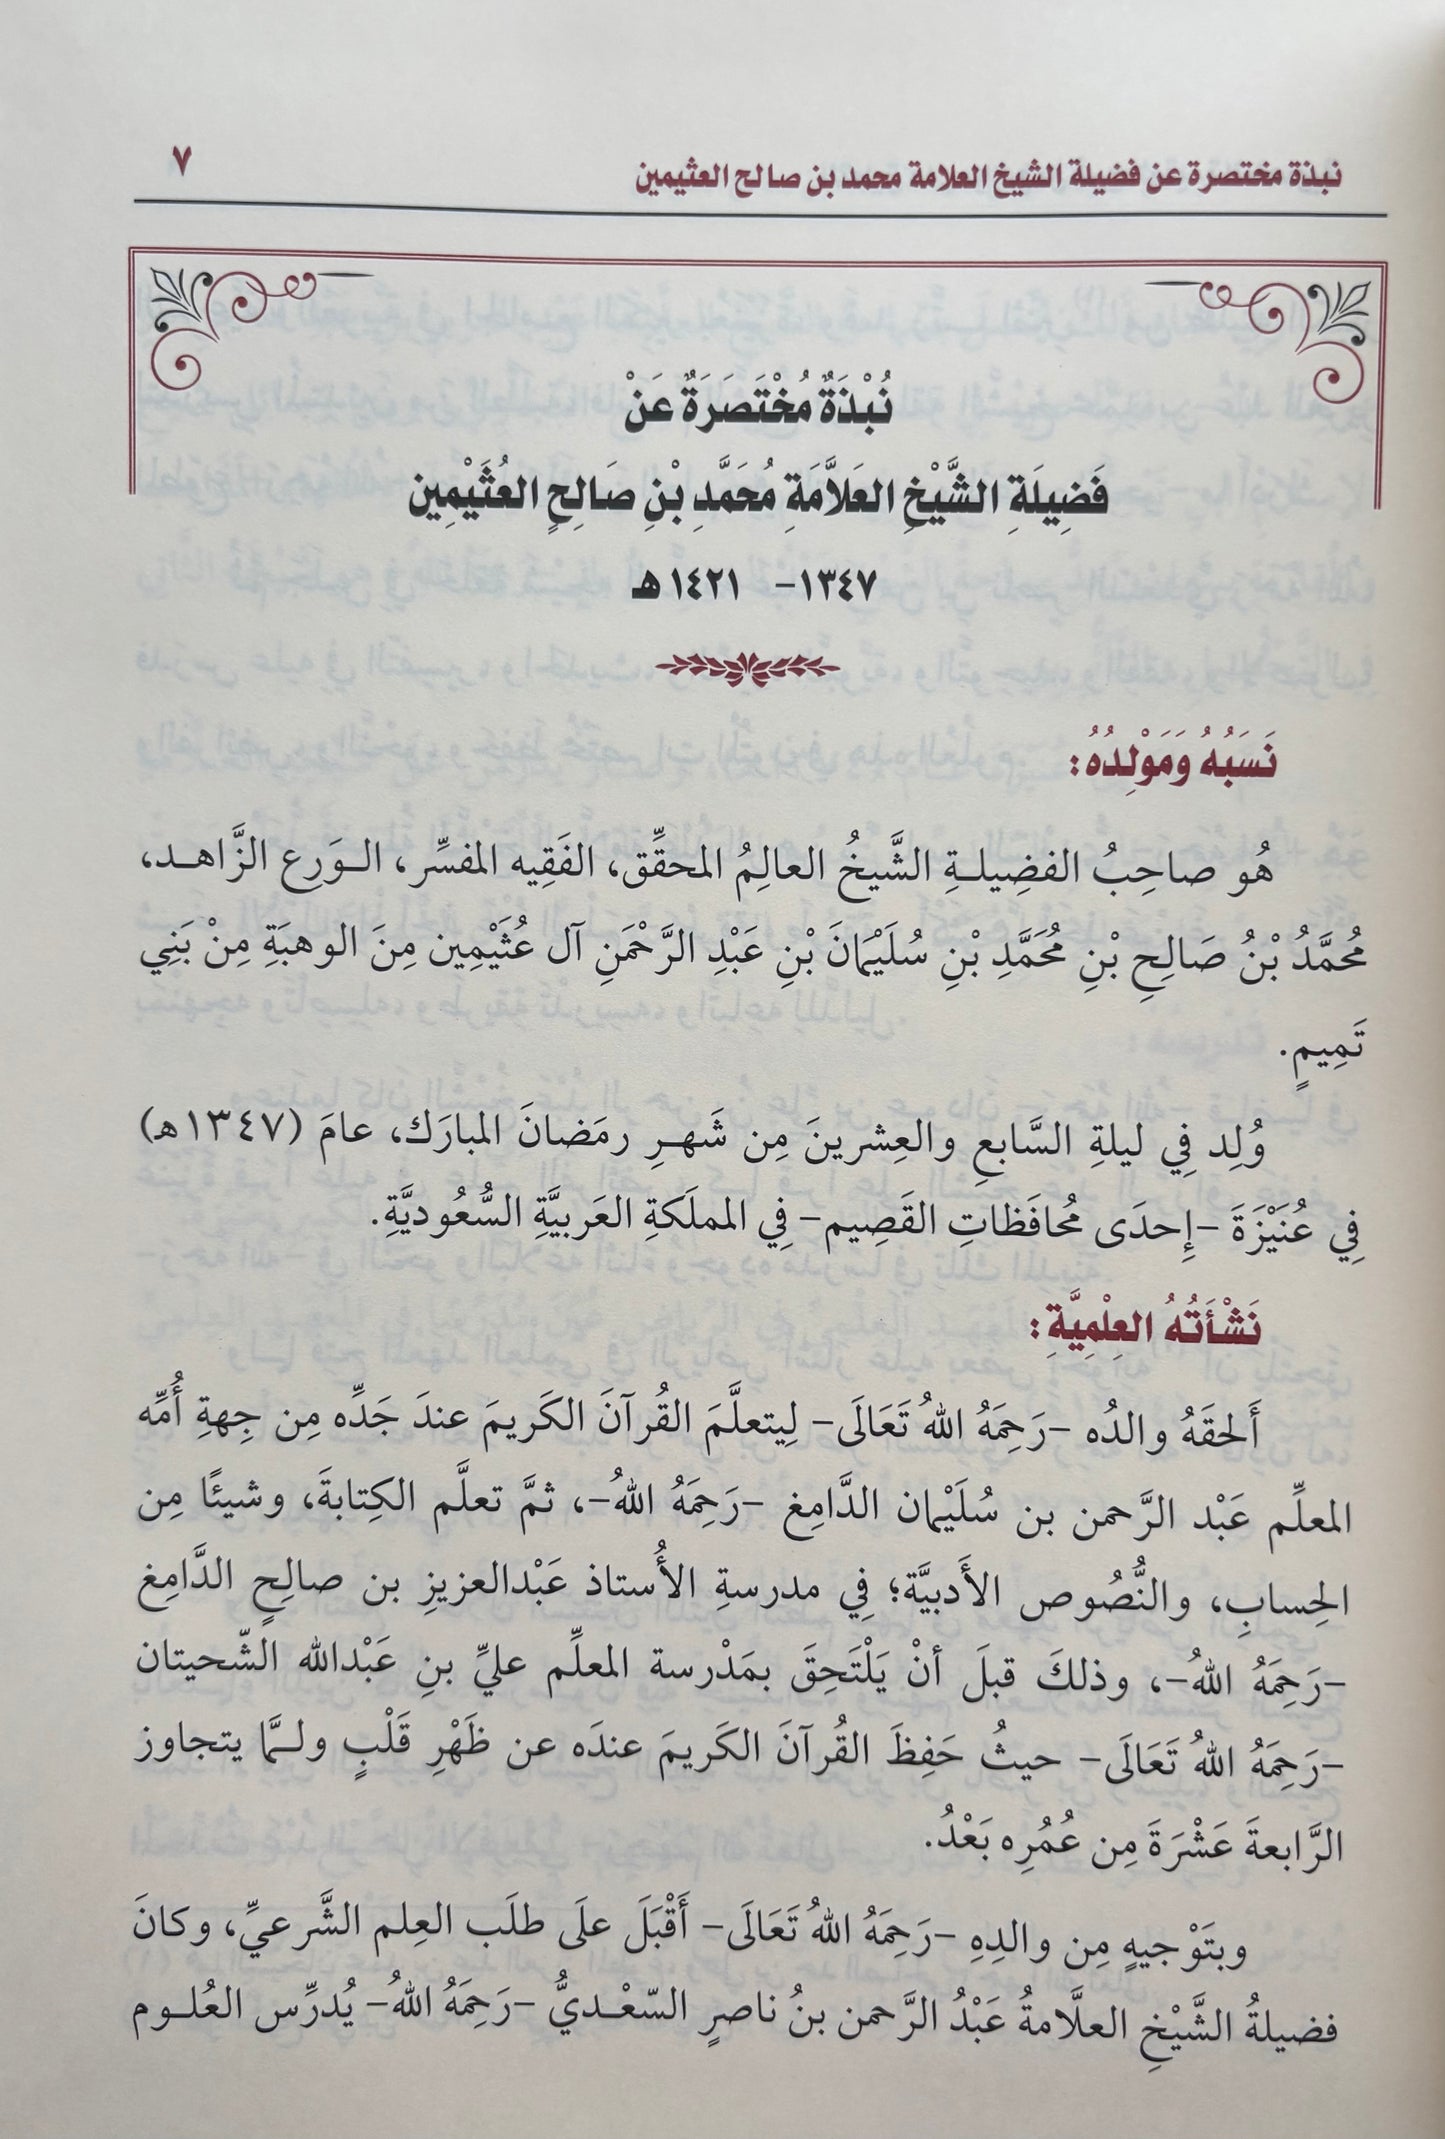 نبذة مختصرة عن فضيلة الشيخ العلامة محمد بن صالح العثيمين ٧
نُبْذَةٌ مُخْتَصَرَةٌ عَنْ
فَضِيلَةِ الشَّيْخِ العَلَّامَةِ مُحَمَّدِ بْنِ صَالِحٍ العُثَيْمِين
١٣٤٧- ١٤٢١ هـ
نَسَبُهُ وَمَوْلِدُهُ:
هُو صاحِبُ الفضِيلـةِ الشَّيخُ العالِمُ المحقِّق، الفَقِيه المفسِّر، الـوَرِع الزَّاهـد،
مُحمَّدُ بْنُ صَالِحِ بْنِ مُحَمَّدِ بْنِ سُلَيْمَانَ بْنِ عَبْدِ الرَّحْمَنِ آل عُثَيْمِين مِنَ الوهبَةِ مِنْ بَنِي
تَمِيمٍ.
وُلِد فِي ليلةِ السَّابعِ والعِشرينَ مِن شَهـرِ رمَضانَ المبارَك، عامَ (١٣٤٧هـ)
فِي عُنَيْزَةَ -إِحدَى مُحافَظاتِ القَصِيم- فِي المملَكةِ العَربيَّةِ السُّعُوديَّةِ.
نَشْأَتُهُ العِلْمِيَّةِ:
أَلحقَهُ والدُه -رَحِمَهُ اللهُ تَعَالَى- لِيتعلَّمَ القُرآنَ الكَريمَ عندَ جَدِّه مِن جِهةِ أُمِّه
المعلِّم عَبْد الرَّحمن بن سُلَيْمان الدَّامِغ -رَحِمَهُ اللهُ-، ثمَّ تعلَّم الكِتابةَ، وشيئًا مِن
الحِسابِ، والنُّصُوص الأَدبيَّة؛ فِي مدرسةِ الأُستاذ عَبْدالعزيزِ بن صالِحٍ الدَّامِغ
-رَحِمَهُ اللهُ-، وذلكَ قبلَ أنْ يَلْتَحِقَ بمَدْرسة المعلِّم عليِّ بنِ عَبْدالله الشّحيتان
-رَحِمَهُ اللهُ تَعَالَى- حيثُ حَفِظَ القُرآنَ الكَريمَ عندَه عن ظَهْرِ قَلْبٍ ولـمَّا يتجاوز
الرَّابعةَ عَشْرَةَ مِن عُمُرِه بَعْدُ.
وبتَوْجيهٍ مِن والدِهِ -رَحِمَهُ اللهُ تَعَالَى- أَقْبَلَ علَى طلَب العِلم الشَّرعيِّ، وكانَ
فضيلةُ الشَّيْخِ العلَّامةُ عَبْدُ الرَّحمن بنُ ناصرٍ السّعْـديُّ -رَحِمَهُ اللهُ- يُدرِّس العُلـوم